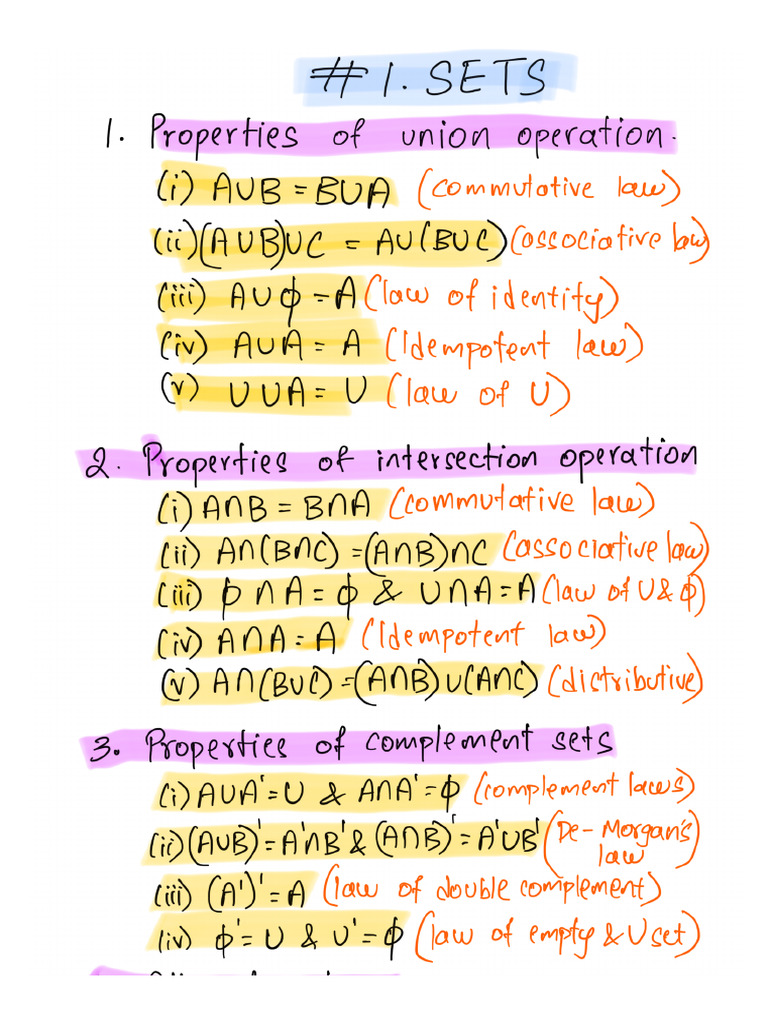 # 1. SETS
1. Properties of union operation.
(i) A∪B = B∪A (commutative law)
(ii) (A∪B)∪C = A∪(B∪C) (associative law)
(iii) A∪ϕ = A (law of identity)
(iv) A∪A = A (Idempotent law)
(v) U∪A = U (law of U)
2. Properties of intersection operation
(i) A∩B = B∩A (commutative law)
(ii) A∩(B∩C) = (A∩B)∩C (associative law)
(iii) ϕ∩A = ϕ & U∩A = A (law of U & ϕ)
(iv) A∩A = A (Idempotent law)
(v) A∩(B∪C) = (A∩B)∪(A∩C) (distributive)
3. Properties of complement sets
(i) A∪A' = U & A∩A' = ϕ (complement laws)
(ii) (A∪B)' = A'∩B' & (A∩B)' = A'∪B' (De-Morgan's
law)
(iii) (A')' = A (law of double complement)
(iv) ϕ' = U & U' = ϕ (law of empty & U set)